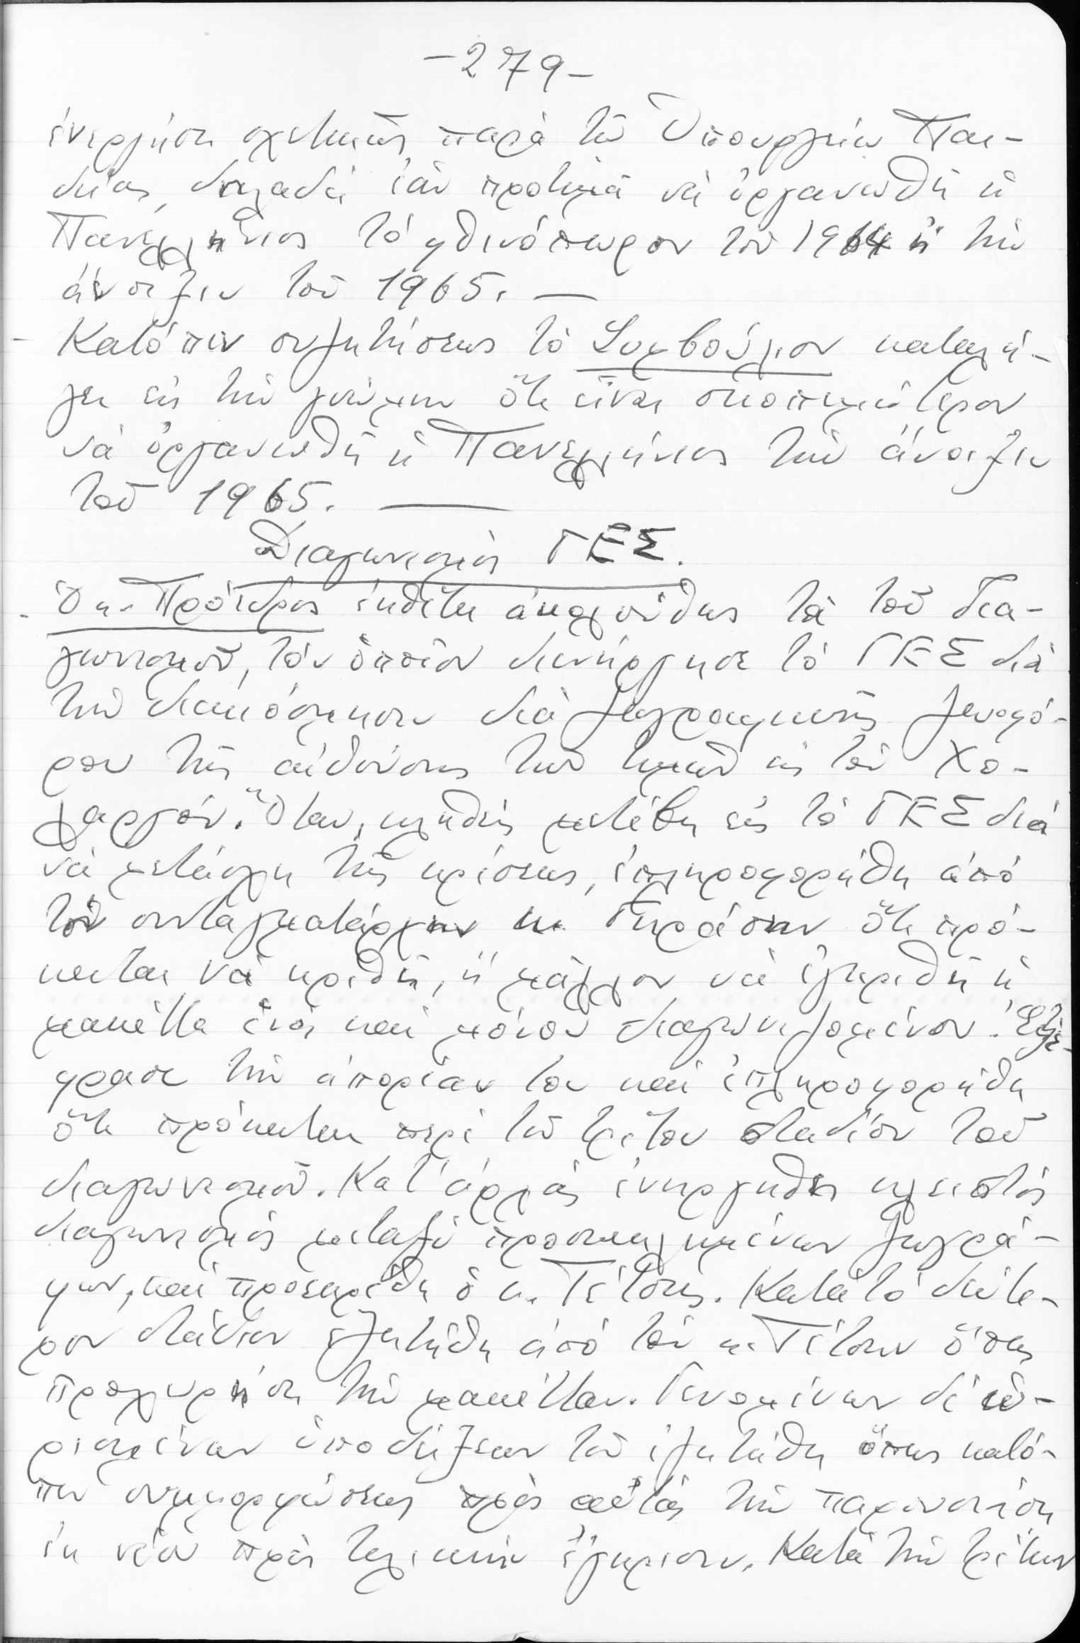 -279-
ἐνεργήση σχετικῶς παρὰ τῷ Ὑπουργείῳ Παι-
δείας, δηλαδὴ ἐὰν προτιμᾶ νὰ ὀργανωθῆ ἡ
Πανελλήνιος τὸ φθινόπωρον τοῦ 1964 ἢ τὴν
ἄνοιξιν τοῦ 1965. —
- Κατόπιν συζητήσεως τὸ Συμβούλιον καταλή-
γει εἰς τὴν γνώμην ὅτι εἶναι σκοπιμώτερον
νὰ ὀργανωθῆ ἡ Πανελλήνιος τὴν ἄνοιξιν
τοῦ 1965. —
Διαγωνισμὸς ΓΕΣ.
Ὁ κ. Πρόεδρος ἐκθέτει ἀκολούθως τὰ τοῦ δια-
γωνισμοῦ, τὸν ὁποῖον διενήργησε τὸ ΓΕΣ διὰ
τὴν διακόσμησιν διὰ ζωγραφικῆς ζωοφό-
ρου τῆς αἰθούσης τιμῶν εἰς τὸν Χο-
λαργόν. Ὅταν, κληθείς, μετέβη εἰς τὸ ΓΕΣ διὰ
νὰ μετάσχη τῆς κρίσεως, ἐπληροφορήθη ἀπὸ
τὸν συνταγματάρχην κ. ὅτι πρό-
κειται νὰ κριθῆ, ἢ μᾶλλον νὰ ἐγκριθῆ ἡ
μακέττα ἑνὸς καὶ μόνου διαγωνιζομένου. Ἐξέ-
φρασε τὴν ἀπορίαν του καὶ ἐπληροφορήθη
ὅτι πρόκειται περὶ τοῦ τρίτου σταδίου τοῦ
διαγωνισμοῦ. Κατ' ἀρχὰς ἐνηργήθη κλειστὸς
διαγωνισμὸς μεταξὺ προσκεκλημένων ζωγρά-
φων, καὶ προεκρίθη ὁ κ. Τέτσης. Κατὰ τὸ δεύτε-
ρον στάδιον ἐζητήθη ἀπὸ τὸν κ. Τέτσην ὅπως
προχωρήση τὴν μακέτταν. Γενομένων δὲ ὡ-
ρισμένων ὑποδείξεων τοῦ ἐζητήθη ὅπως κατό-
πιν συμμορφώσεως πρὸς αὐτὰς τὴν παρουσιάση
ἐκ νέου πρὸς τελικὴν ἔγκρισιν. Κατὰ τὴν τρίτην